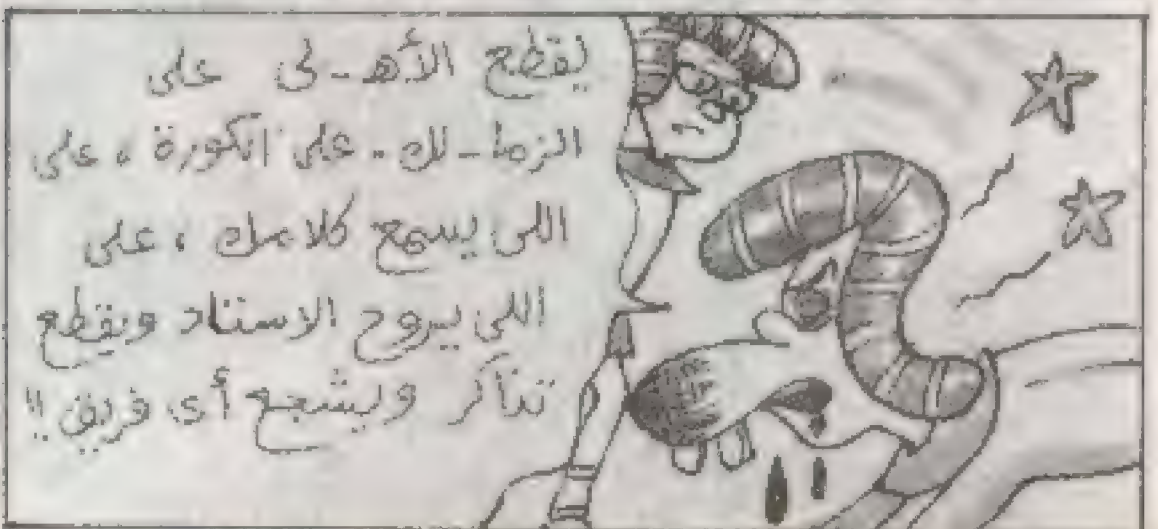 يقطع الأهـ-لى على
الزما-لك - على الكورة ، على
اللى يسمع كلامك ، على
اللى يروح الاستاد ويقطع
تذاكر ويشجع أى فريق !!